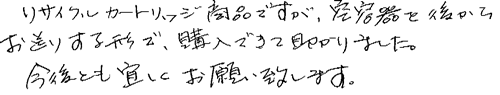 リサイクルカートリッジ商品ですが、空容器を後から
お送りする形で、購入できて助かりました。
今後とも宜しくお願い致します。